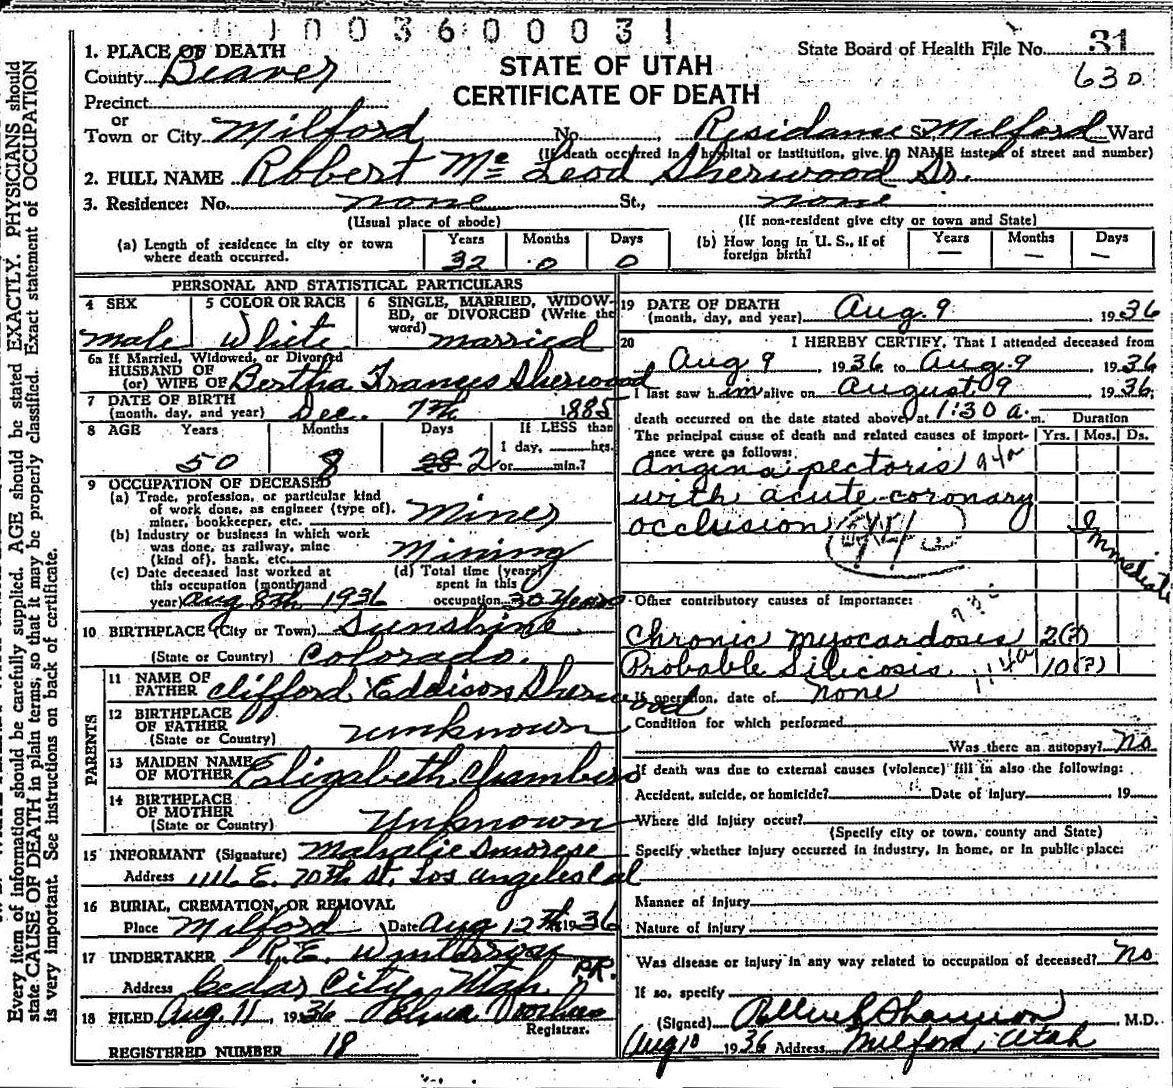 1003600031
State Board of Health File No. 31
630
1. PLACE OF DEATH
STATE OF UTAH
County Beaver
CERTIFICATE OF DEATH
Precinct
or
Town or City Milford No. Residance St. Milford Ward
(If death occurred in a hospital or institution, give its NAME instead of street and number)
2. FULL NAME Robert Mc Leod Sherwood Sr.
3. Residence: No. none St., none
(Usual place of abode) (If non-resident give city or town and State)
(a) Length of residence in city or town where death occurred. Years 32 Months 0 Days 0
(b) How long in U. S., if of foreign birth? Years — Months — Days —
PERSONAL AND STATISTICAL PARTICULARS
4 SEX male
5 COLOR OR RACE White
6 SINGLE, MARRIED, WIDOWED, or DIVORCED (Write the word) married
6a If Married, Widowed, or Divorced
HUSBAND OF
(or) WIFE OF Bertha Frances Sherwood
7 DATE OF BIRTH
(month, day, and year) Dec. 7th 1885
8 AGE Years 50 Months 8 Days 28 2 If LESS than 1 day, hrs. or min.?
9 OCCUPATION OF DECEASED
(a) Trade, profession, or particular kind of work done, as engineer (type of), miner, bookkeeper, etc. Miner
(b) Industry or business in which work was done, as railway, mine (kind of), bank, etc. Mining
(c) Date deceased last worked at this occupation (month and year) Aug 8th 1936
(d) Total time (years) spent in this occupation 30 Years
10 BIRTHPLACE (City or Town) Sunshine
(State or Country) Colorado.
PARENTS
11 NAME OF FATHER Clifford Eddison Sherwood
12 BIRTHPLACE OF FATHER
(State or Country) unknown
13 MAIDEN NAME OF MOTHER Elizabeth Chambers
14 BIRTHPLACE OF MOTHER
(State or Country) Unknown
15 INFORMANT (Signature) Mahalie
Address 1116 E. 70th St. Los Angeles Cal
16 BURIAL, CREMATION, OR REMOVAL
Place Milford Date Aug 12th 1936
17 UNDERTAKER R.E.
P.R.
Address Cedar City, Utah.
18 FILED Aug. 11, 1936 Elna
Registrar.
REGISTERED NUMBER 18
19 DATE OF DEATH
(month, day, and year) Aug. 9 1936
20 I HEREBY CERTIFY, That I attended deceased from
Aug 9 1936 to Aug. 9 1936
I last saw him alive on August 9 1936;
death occurred on the date stated above, at 1:30 a. m. Duration
The principal cause of death and related causes of importance were as follows: Yrs. Mos. Ds.
Angina pectoris 94a
with acute coronary
occlusion Immediate
Other contributory causes of importance:
Chronic myocardosis 2(?)
Probable Silicosis 114a 10(?)
If operation, date of none
Condition for which performed
Was there an autopsy? No
If death was due to external causes (violence) fill in also the following:
Accident, suicide, or homicide? Date of injury 19
Where did injury occur?
(Specify city or town, county and State)
Specify whether injury occurred in industry, in home, or in public place:
Manner of injury
Nature of injury
Was disease or injury in any way related to occupation of deceased? No
If so, specify
(Signed) M.D.
Aug 10 1936 Address Milford, Utah
Every item of information should be carefully supplied. AGE should be stated EXACTLY. PHYSICIANS should
state CAUSE OF DEATH in plain terms, so that it may be properly classified. Exact statement of OCCUPATION
is very important. See instructions on back of certificate.